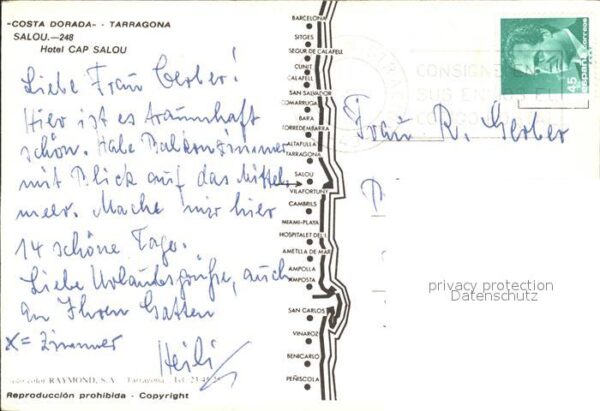 -COSTA DORADA- - TARRAGONA
SALOU.—248
Hotel CAP SALOU
Liebe Frau Gerber!
Hier ist es traumhaft
schön. Habe Balkonzimmer
mit Blick auf das Mittel-
meer. Mache mir hier
14 schöne Tage.
Liebe Urlaubsgrüße, auch
an Ihren Gatten
X = Zimmer
Heidi
color RAYMOND, S.A. Tarragona Tel.
Reproducción prohibida - Copyright
BARCELONA
SITGES
SEGUR DE CALAFELL
CUNIT
CALAFELL
SAN SALVADOR
COMARRUGA
BARA
TORREDEMBARRA
ALTAFULLA
TARRAGONA
SALOU
VILAFORTUNY
CAMBRILS
MIAMI-PLAYA
HOSPITALET DE L I
AMETLLA DE MAR
AMPOLLA
AMPOSTA
SAN CARLOS
VINAROZ
BENICARLO
PEÑISCOLA
CONSIGNE EN
SUS ENVIOS EL
45
españa
correos
Frau R. Gerber
privacy protection
Datenschutz